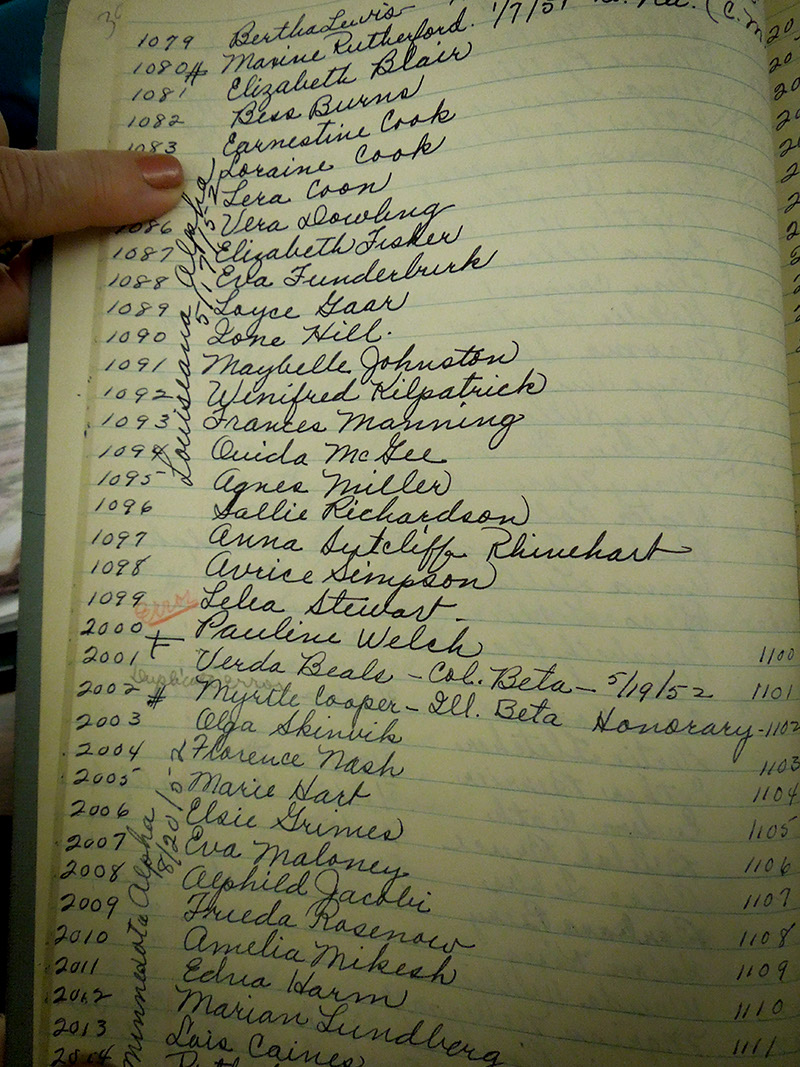 30
1079 Bertha Lewis
1080 # Maxine Rutherford. 1/7/51
1081 Elizabeth Blair
1082 Bess Burns
1083 Earnestine Cook
Loraine Cook
Lera Coon
1086 Vera Dowling
1087 Elizabeth Fisher
1088 Eva Funderburk
1089 Loyce Gaar
1090 Ione Hill.
1091 Maybelle Johnston
1092 Winifred Kilpatrick
1093 Frances Manning
1094 Ouida McGee
1095 Agnes Miller
1096 Sallie Richardson
1097 Anna Sutcliffe Rhinehart
1098 Avrice Simpson
1099 Lelia Stewart
Louisiana Alpha
5/17/52
Error
2000 Pauline Welch 1100
2001 Verda Beals - Col. Beta - 5/19/52 1101
Duplicate error
2002 # Myrtle Cooper - Ill. Beta Honorary - 1102
2003 Olga Skinvik 1103
2004 Florence Nash 1104
2005 Marie Hart 1105
2006 Elsie Grimes 1106
2007 Eva Maloney 1107
2008 Alphild Jacobi 1108
2009 Frieda Rosenow 1109
2010 Amelia Mikesh 1110
2011 Edna Harm 1111
2012 Marian Lundberg
2013 Lois Caines
2014
Minnesota Alpha
8/20/52